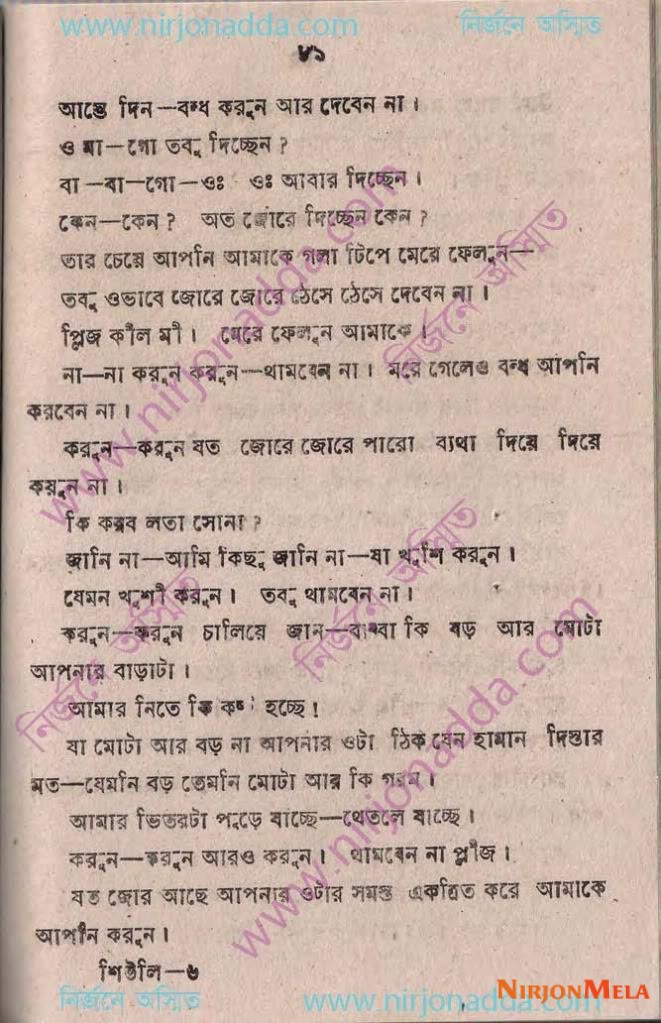 www.nirjonadda.com নির্জনে অস্মিত
৮১
আস্তে দিন—বন্ধ করুন আর দেবেন না।
ও মা—গো তবু দিচ্ছেন?
বা—বা—গো—ওঃ ওঃ আবার দিচ্ছেন।
কেন—কেন? অত জোরে দিচ্ছেন কেন?
তার চেয়ে আপনি আমাকে গলা টিপে মেরে ফেলুন—
তবু ওভাবে জোরে জোরে ঠেসে ঠেসে দেবেন না।
প্লিজ কীল মী। মেরে ফেলুন আমাকে।
না—না করুন করুন—থামবেন না। মরে গেলেও বন্ধ আপনি
করবেন না।
করুন—করুন যত জোরে জোরে পারো ব্যথা দিয়ে দিয়ে
করুন না।
কি করব লতা সোনা?
জানি না—আমি কিছু জানি না—যা খুশি করুন।
যেমন খুশী করুন। তবু থামবেন না।
করুন—করুন চালিয়ে জান—বাব্বা কি বড় আর মোটা
আপনার বাড়াটা।
আমার নিতে কি কষ্ট হচ্ছে!
যা মোটা আর বড় না আপনার ওটা ঠিক যেন হামান দিস্তার
মত—যেমনি বড় তেমনি মোটা আর কি গরম।
আমার ভিতরটা পুড়ে যাচ্ছে—থেতলে যাচ্ছে।
করুন—করুন আরও করুন। থামবেন না প্লীজ।
যত জোর আছে আপনার ওটার সমস্ত একত্রিত করে আমাকে
আপনি করুন।
শিউলি—৬
নির্জনে অস্মিত www.nirjonadda.com
NIRJONMELA
www.nirjonadda.com
নির্জনে অস্মিত
নির্জনে অস্মিত
নির্জনে অস্মিত
www.nirjonadda.com